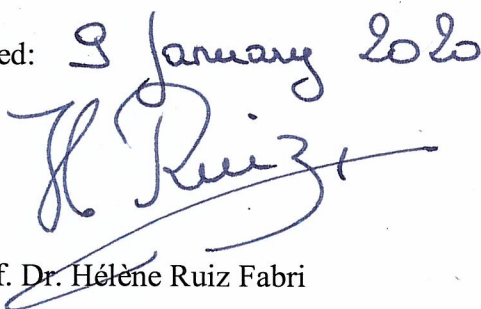 ed: 9 January 2020
H Ruiz
f. Dr. Hélène Ruiz Fabri